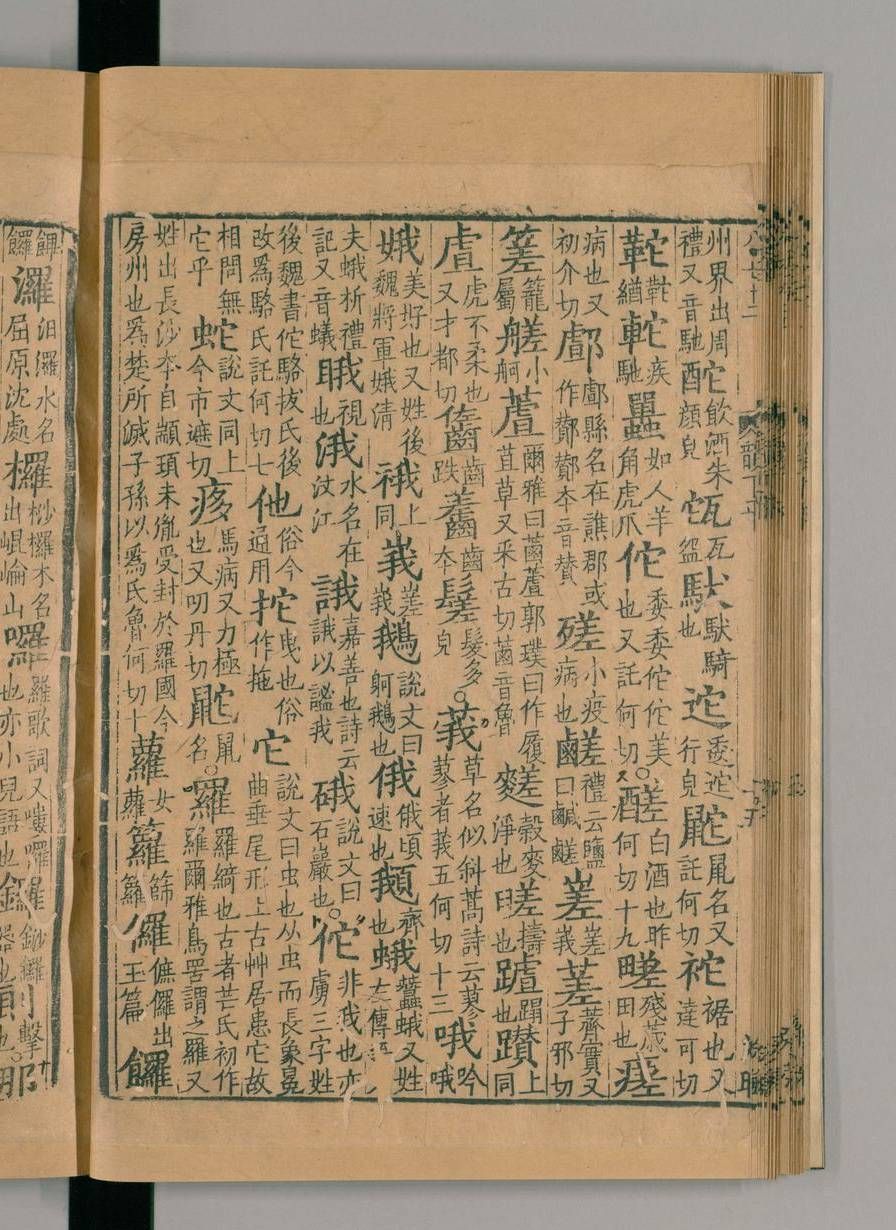 州界出周禮又音馳酡飲酒朱顏皃㼠瓦盌也馱馱騎迱委迱行皃鼧鼠名又託何切袉裾也又達可切
緧䡐疾馳如人羊角虎爪佗委委佗佗美也又託何切醝白酒也昨何切十九殘薉田也瘥
病也又初介切酂縣名在譙郡或作酇酇本音贊小疫病也鹺禮云鹽曰鹹鹺嵯嵯峩蒫薺實又子邪切
籠屬艖小舸蔖爾雅曰菡蔖郭璞曰作履苴草又采古切菡音魯穀麥淨也擣也蹋也躦上同
虘虎不柔也又才都切齹齒跌齒本髮多皃莪草名似斜蒿詩云蓼蓼者莪五何切十三哦吟哦
娥美好也又姓後魏將軍娥清上同峩嵯峩鵝說文曰鴚鵝也俄俄頃速也齊也蛾蠶蛾又姓左傳
夫蛾析禮記又音蟻睋視也涐水名在汶江誐嘉善也詩云誐以謐我硪說文曰石巖也佗非我也亦虜三字姓
後魏書佗駱拔氏後改爲駱氏託何切七他俗今通用拕曳也俗作拖它說文曰虫也从虫而長象冤曲垂尾形上古艸居患它故
相問無它乎蛇說文同上今市遮切痑馬病又力極也又叨丹切鼧鼠名羅羅綺也古者芒氏初作羅爾雅鳥罟謂之羅又
姓出長沙本自顓頊末胤受封於羅國今房州也爲楚所滅子孫以爲氏魯何切十蘿女蘿籮篩籮儸㒓儸出玉篇饠
饆饠汨水名屈原沈處欏桫欏木名出崐崘山囉歌詞又嘍囉也亦小兒語也鑼器也擊也那